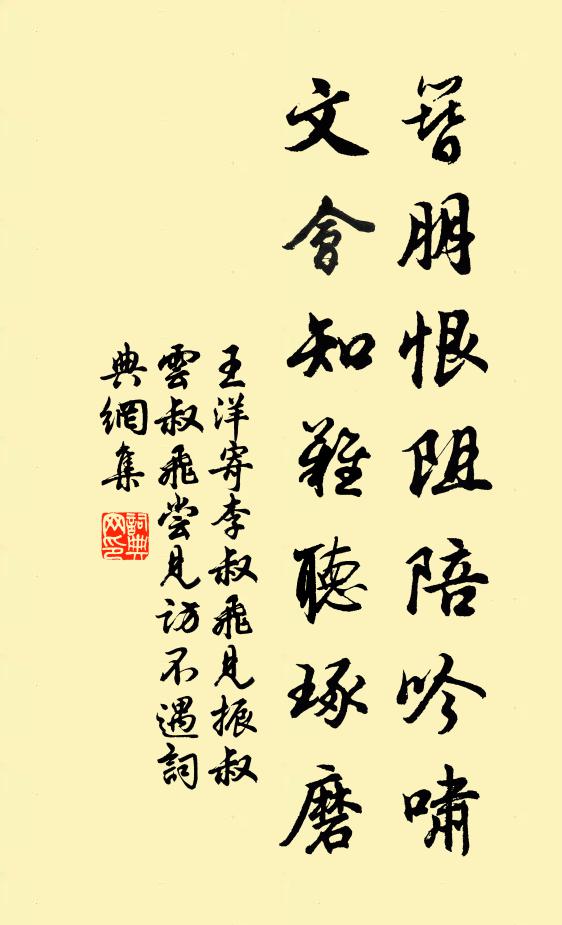 簪朋恨阻陪吟嘯
文會知難聽琢磨
王洋寄李叔飛見振叔
雲叔飛嘗見訪不遇詞
典網集
詞典網印